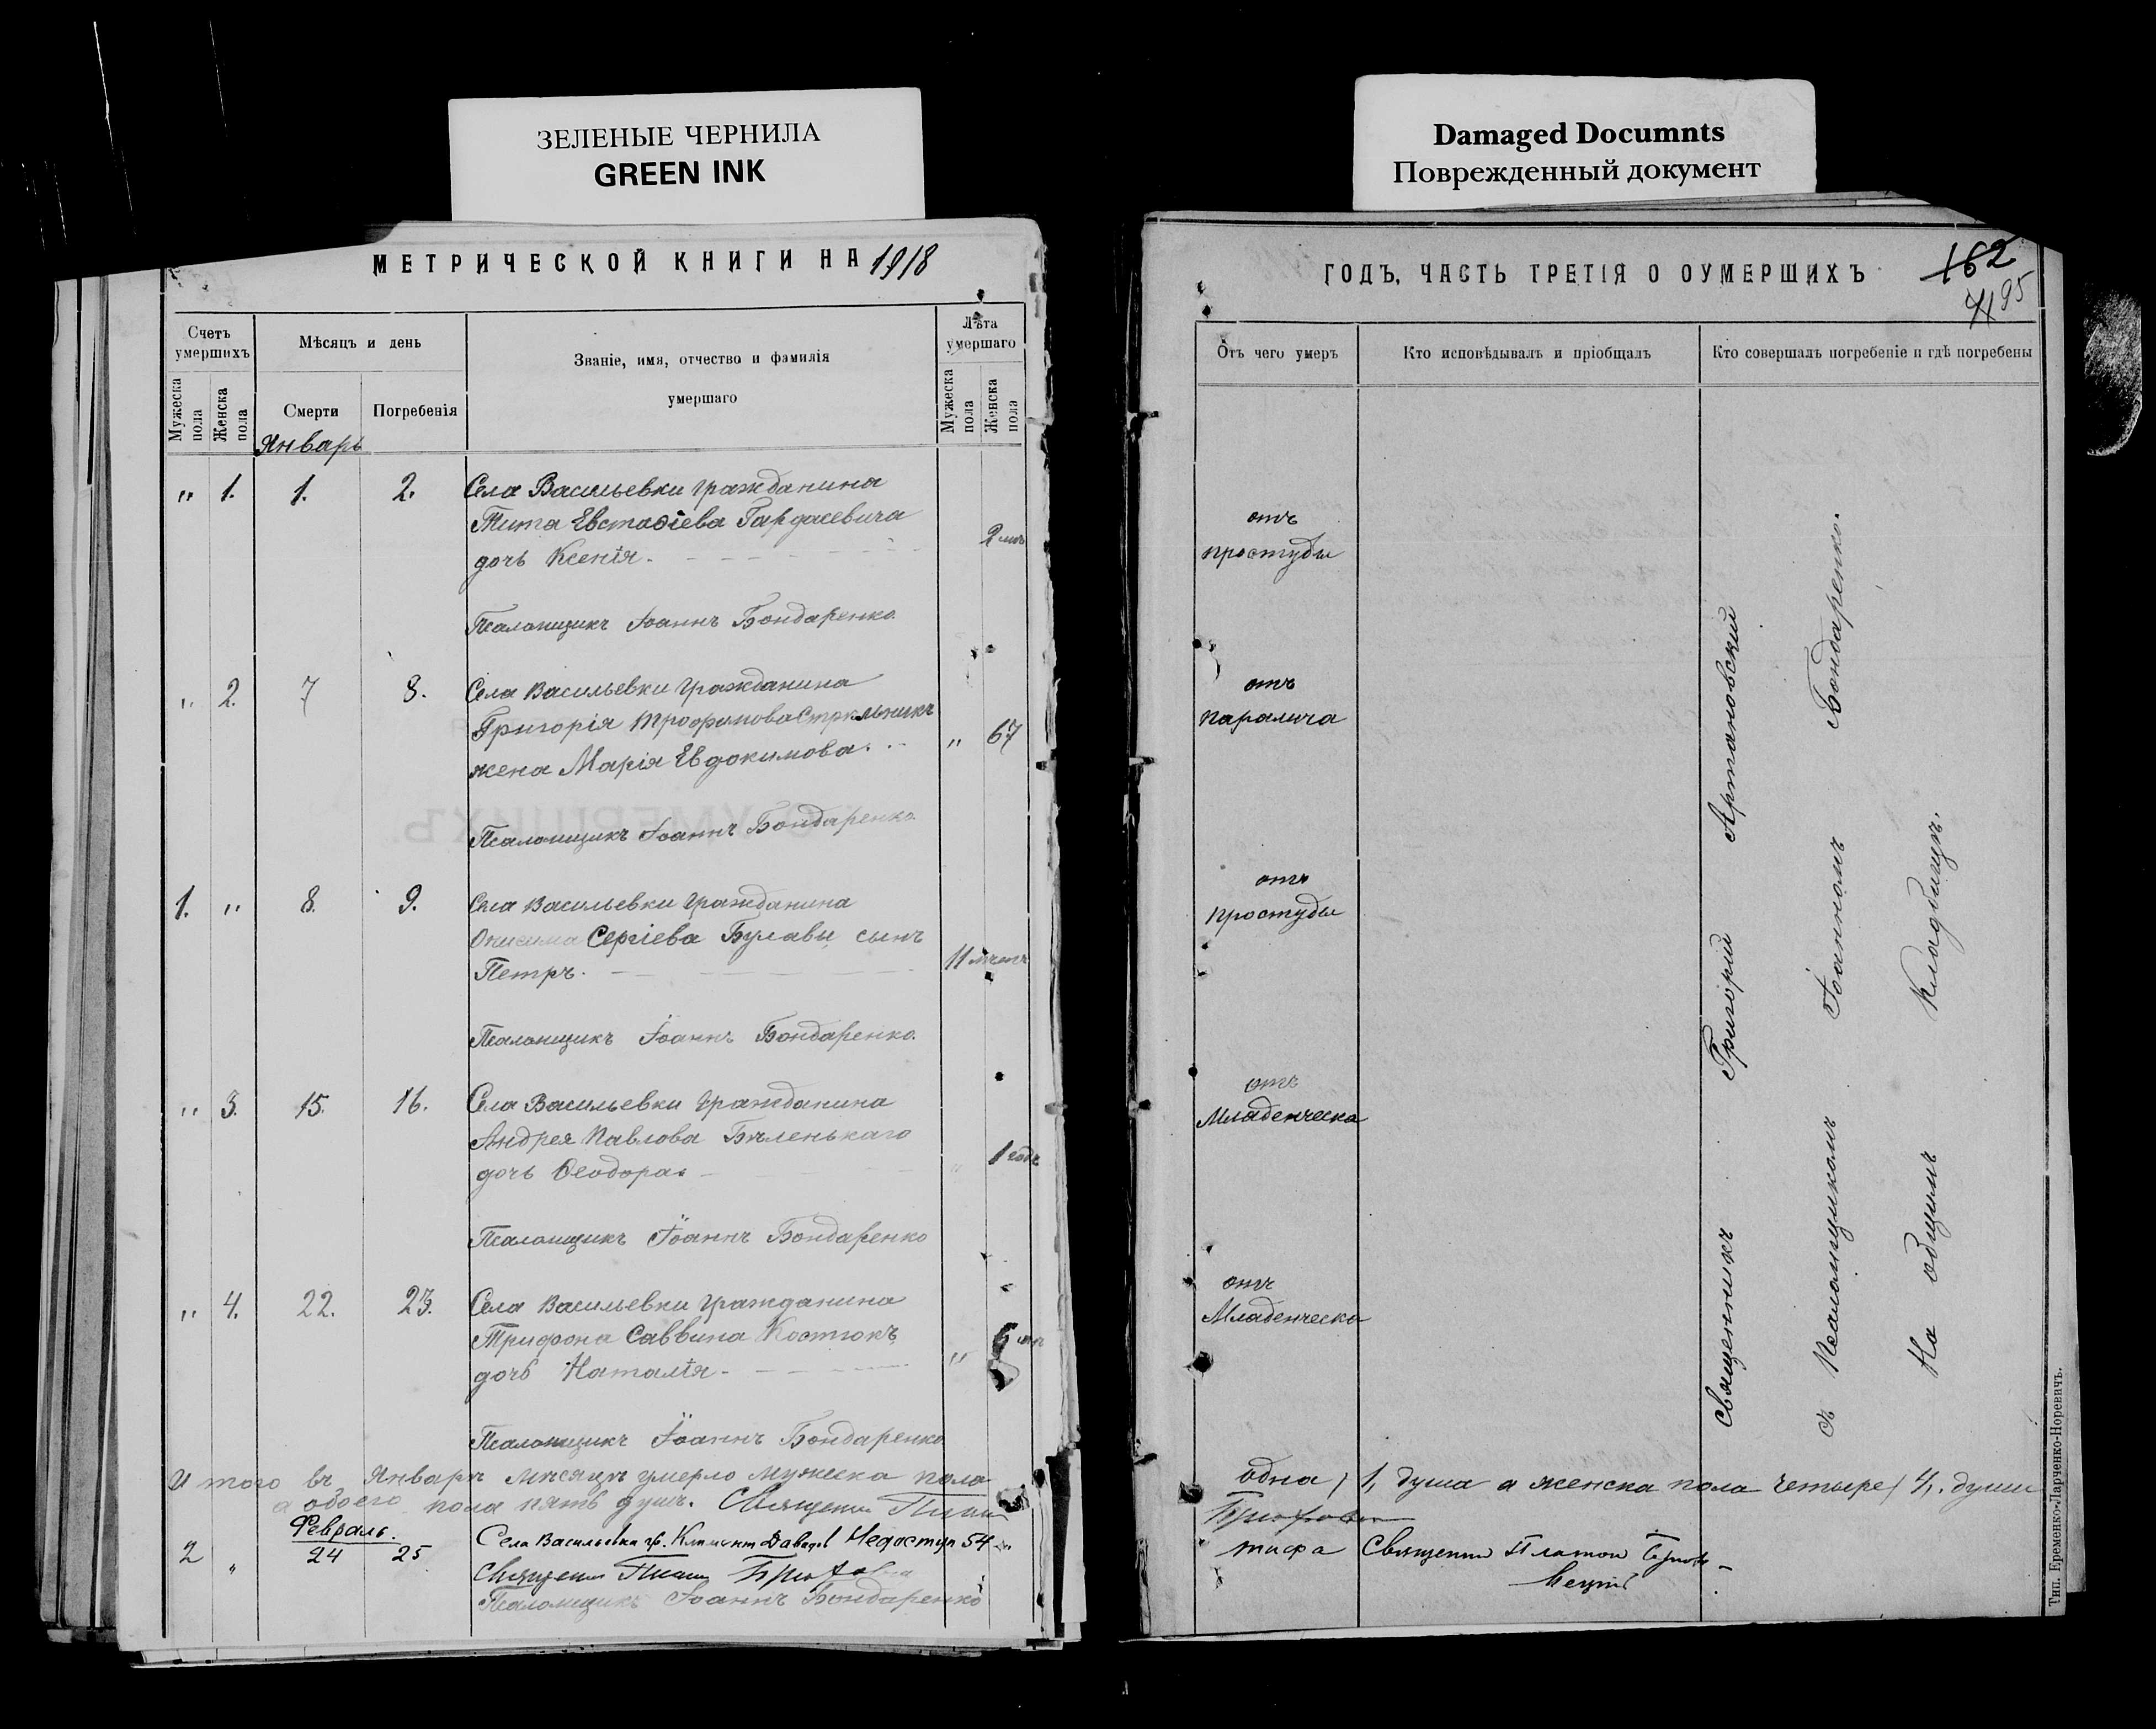 ЗЕЛЕНЫЕ ЧЕРНИЛА
GREEN INK
Damaged Documnts
Поврежденный документ
МЕТРИЧЕСКОЙ КНИГИ НА 1918
Счетъ умершихъ
Мужеска пола
Женска пола
Мѣсяцъ и день
Смерти
Погребенія
Званіе, имя, отчество и фамилія
умершаго
Лѣта умершаго
Мужеска пола
Женска пола
Январь
" 1. 1. 2. Села Васильевки гражданина
Тита Евстаѳіева
дочь Ксенія. 2
Псаломщикъ Іоаннъ Бондаренко
" 2. 7 8. Села Васильевки гражданина
Григорія Трофимова Стрѣльникъ
жена Марія Евдокимова. " 67
Псаломщикъ Іоаннъ Бондаренко
1. " 8. 9. Села Васильевки гражданина
Онисима Сергіева Булавы сынъ
Петръ. 11
Псаломщикъ Іоаннъ Бондаренко.
" 3. 15. 16. Села Васильевки гражданина
Андрея Павлова Бѣленькаго
дочь Ѳеодора " 1 годъ
Псаломщикъ Іоаннъ Бондаренко
" 4. 22. 23. Села Васильевки гражданина
Трифона Саввина Костюкъ
дочь Наталія " 6
Псаломщикъ Іоаннъ Бондаренко
Итого въ Январѣ мѣсяцѣ умерло мужеска пола
а обоего пола пять душъ. Священ
Февраль.
2 " 24 25 Села Васильевка гр. Климент Давидов Недоступ 54
Священ
Псаломщикъ Іоаннъ Бондаренко
ГОДЪ, ЧАСТЬ ТРЕТІЯ О ОУМЕРШИХЪ
162
95
Отъ чего умеръ
Кто исповѣдывалъ и пріобщалъ
Кто совершалъ погребеніе и гдѣ погребены
отъ
простуды
отъ
паралича
отъ
простуды
отъ
Младенческа
отъ
Младенческа
Священникъ Григорій Артановскій
съ Псаломщикомъ Іоанномъ Бондаренко.
На общемъ кладбищѣ.
одна / 1, душа а женска пола четыре / 4,. души
тифа Священ Платон
Тип. Еременко-Ларченко-Норевичъ.